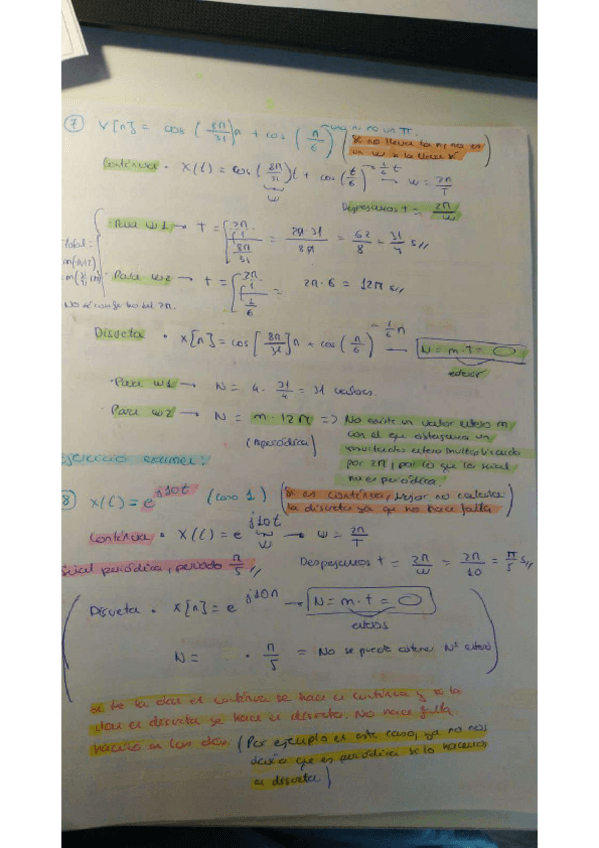 7 X[n] = cos (8π/31)n + cos (n/6) (Si no lleva la n, no es
Continua · X(t) = cos (8π/31)t + cos (t/6) → 1/6 t → w = 2π/T
w
Despejamos t = 2π/w
· Para w1 → T = 2π/1 / 8π/31 = 2π·31/8π = 62/8 = 31/4 s//
Total =
· Para w2 → t = 2π/1 / 1/6 = 2π·6 = 12π s//
Discreta · X[n] = cos [8π/31]n + cos (n/6) → 1/6 n → N = m·t = O
entero
· Para w1 → N = 4 · 31/4 = 31 valores.
· Para w2 → N = m·12π => No existe un valor entero m
(Aperiódica) con el que obtengamos un
resultado entero multiplicando
por 2π, por lo que la señal
no es periódica.
Ejercicio examen:
8 X(t) = e^j10t (caso 1) (Si es continua, mejor no calcular
la discreta ya que no hace falta)
Continua · X(t) = e^j10t → w = 2π/T
w
señal periódica, periodo π/5 // Despejamos t = 2π/w = 2π/10 = π/5 s//
(Discreta · X[n] = e^j10n → N = m·t = O
enteros
N = · π/5 = No se puede obtener Nº entero)
si te la dan en continua se hace en continua y si la
dan en discreta se hace en discreta. No hace falta
hacerlo en las dos. (Por ejemplo en este caso, ya no nos
daría que es periódica si lo hacemos
en discreta.)